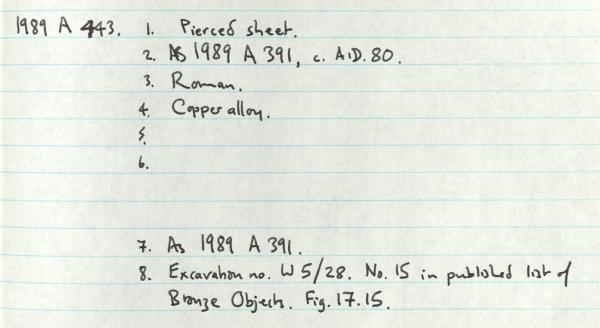 1989 A 443. 1. Pierced sheet.
2. As 1989 A 391, c. A.D. 80.
3. Roman.
4. Copper alloy.
5.
6.
7. As 1989 A 391.
8. Excavation no. W 5/28. No. 15 in published list of
Bronze Objects. Fig. 17.15.